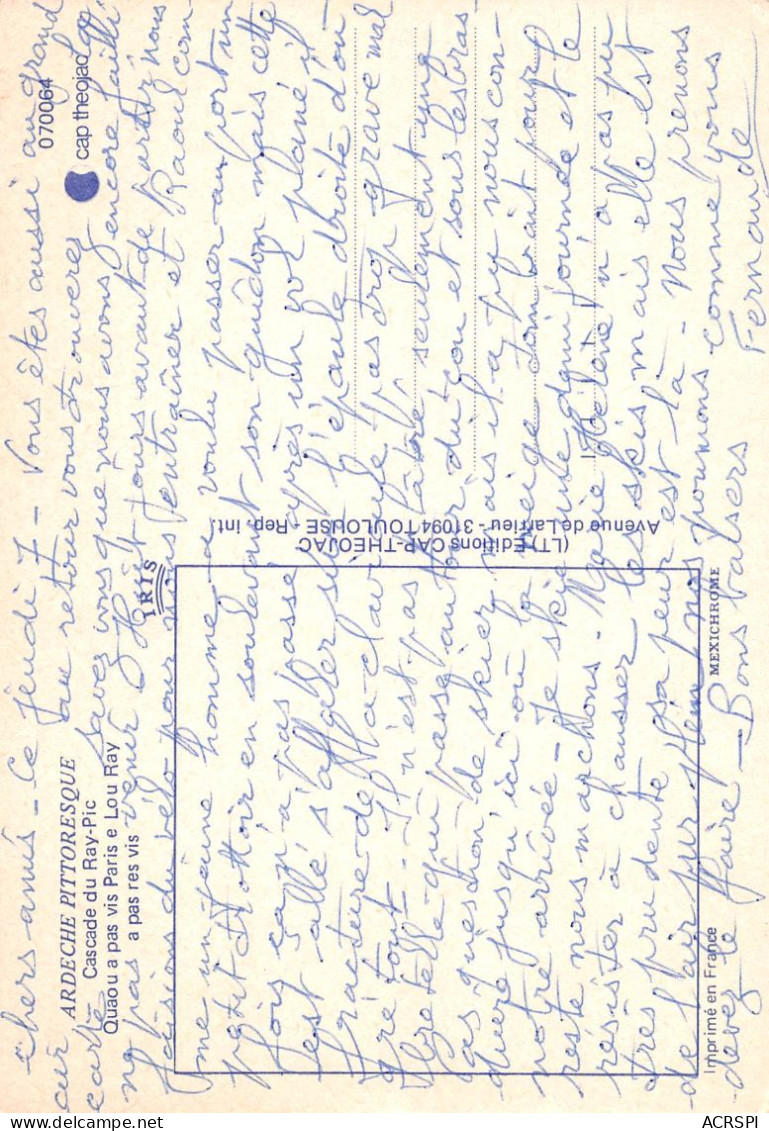 Chers amis - Ce jeudi 7 - Vous êtes aussi au grand
air au retour vous trouverez
carte savez vous que nous avons encore failli
ne pas venir Huit jours avant de partir nous
faisions du vélo pour nous entraîner et Raoul com-
me un jeune homme a voulu passer au port un
petit trottoir en soulevant son guidon mais cette
fois ça n'a pas passé après un vol plané il
est allé s'affaler sur l'épaule droite d'où
fracture de la clavicule pas trop grave mal
gré tout. Il n'est pas plâtré seulement une
bretelle qui passe autour du cou et sous les bras
pas question de skier mais il a pu nous con-
duire jusqu'ici où la neige tombait pour
notre arrivée - Je skie une demi journée et le
reste nous marchons. Marie Hélène n'a pas pu
résister à chausser les skis mais elle est
très prudente, sa peur est là - nous prenons
de l'air pur plein nos poumons comme vous
devez le faire - Bons baisers
Fernande
ARDECHE PITTORESQUE
Cascade du Ray-Pic
Quaou a pas vis Paris e Lou Ray
a pas res vis
IRIS
070064
cap theojac
(LT) Editions CAP-THEOJAC
Avenue de Larrieu - 31094 TOULOUSE - Rep. int.
MEXICHROME
Imprimé en France
ACRSPI